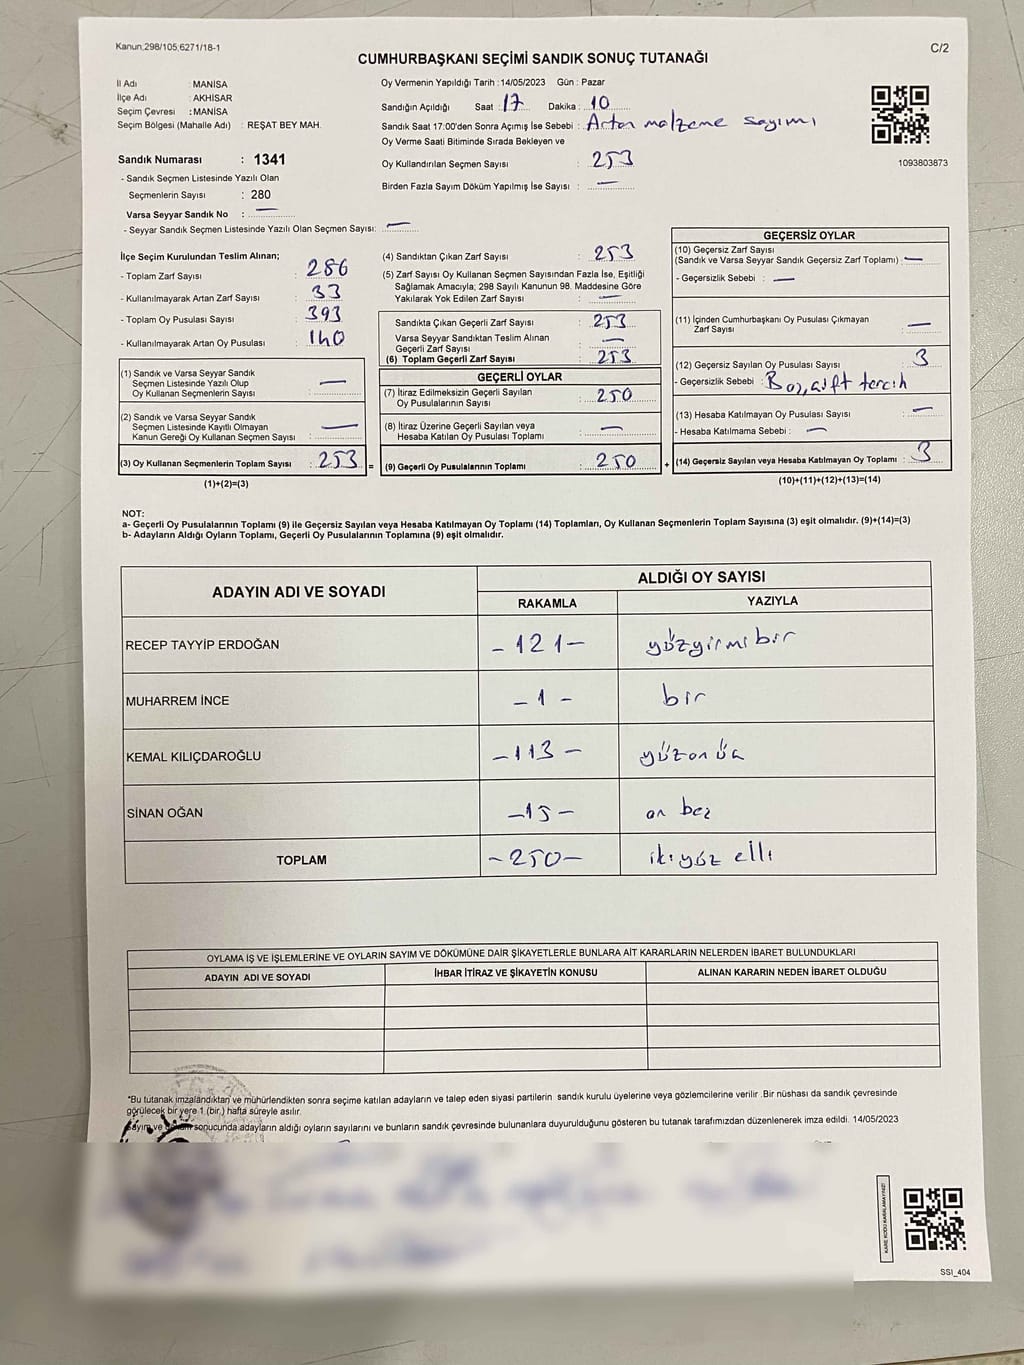 Kanun,298/105;6271/18-1
C/2
CUMHURBAŞKANI SEÇİMİ SANDIK SONUÇ TUTANAĞI
İl Adı : MANİSA
İlçe Adı : AKHİSAR
Seçim Çevresi : MANİSA
Seçim Bölgesi (Mahalle Adı) : REŞAT BEY MAH.
Sandık Numarası : 1341
- Sandık Seçmen Listesinde Yazılı Olan
Seçmenlerin Sayısı : 280
Varsa Seyyar Sandık No : —
- Seyyar Sandık Seçmen Listesinde Yazılı Olan Seçmen Sayısı: —
Oy Vermenin Yapıldığı Tarih : 14/05/2023 Gün : Pazar
Sandığın Açıldığı Saat : 17 Dakika : 10
Sandık Saat 17:00'den Sonra Açımış İse Sebebi : Artan malzeme sayımı
Oy Verme Saati Bitiminde Sırada Bekleyen ve
Oy Kullandırılan Seçmen Sayısı : 253
Birden Fazla Sayım Döküm Yapılmış İse Sayısı : —
1093803873
İlçe Seçim Kurulundan Teslim Alınan;
- Toplam Zarf Sayısı : 286
- Kullanılmayarak Artan Zarf Sayısı : 33
- Toplam Oy Pusulası Sayısı : 393
- Kullanılmayarak Artan Oy Pusulası : 140
(1) Sandık ve Varsa Seyyar Sandık
Seçmen Listesinde Yazılı Olup
Oy Kullanan Seçmenlerin Sayısı : —
(2) Sandık ve Varsa Seyyar Sandık
Seçmen Listesinde Kayıtlı Olmayan
Kanun Gereği Oy Kullanan Seçmen Sayısı : —
(3) Oy Kullanan Seçmenlerin Toplam Sayısı : 253 =
(1)+(2)=(3)
(4) Sandıktan Çıkan Zarf Sayısı : 253
(5) Zarf Sayısı Oy Kullanan Seçmen Sayısından Fazla İse, Eşitliği
Sağlamak Amacıyla; 298 Sayılı Kanunun 98. Maddesine Göre
Yakılarak Yok Edilen Zarf Sayısı : —
Sandıkta Çıkan Geçerli Zarf Sayısı : 253
Varsa Seyyar Sandıktan Teslim Alınan
Geçerli Zarf Sayısı : —
(6) Toplam Geçerli Zarf Sayısı : 253
GEÇERLİ OYLAR
(7) İtiraz Edilmeksizin Geçerli Sayılan
Oy Pusulalarının Sayısı : 250
(8) İtiraz Üzerine Geçerli Sayılan veya
Hesaba Katılan Oy Pusulası Toplamı : —
(9) Geçerli Oy Pusulalarının Toplamı : 250 +
GEÇERSİZ OYLAR
(10) Geçersiz Zarf Sayısı
(Sandık ve Varsa Seyyar Sandık Geçersiz Zarf Toplamı) : —
- Geçersizlik Sebebi : —
(11) İçinden Cumhurbaşkanı Oy Pusulası Çıkmayan
Zarf Sayısı : —
(12) Geçersiz Sayılan Oy Pusulası Sayısı : 3
- Geçersizlik Sebebi : Boş, çift tercih
(13) Hesaba Katılmayan Oy Pusulası Sayısı : —
- Hesaba Katılmama Sebebi : —
(14) Geçersiz Sayılan veya Hesaba Katılmayan Oy Toplamı : 3
(10)+(11)+(12)+(13)=(14)
NOT:
a- Geçerli Oy Pusulalarının Toplamı (9) ile Geçersiz Sayılan veya Hesaba Katılmayan Oy Toplamı (14) Toplamları, Oy Kullanan Seçmenlerin Toplam Sayısına (3) eşit olmalıdır. (9)+(14)=(3)
b- Adayların Aldığı Oyların Toplamı, Geçerli Oy Pusulalarının Toplamına (9) eşit olmalıdır.
ADAYIN ADI VE SOYADI ALDIĞI OY SAYISI
RAKAMLA YAZIYLA
RECEP TAYYİP ERDOĞAN -121- yüzyirmi bir
MUHARREM İNCE -1- bir
KEMAL KILIÇDAROĞLU -113- yüzonüç
SİNAN OĞAN -15- on beş
TOPLAM -250- ikiyüz elli
OYLAMA İŞ VE İŞLEMLERİNE VE OYLARIN SAYIM VE DÖKÜMÜNE DAİR ŞİKAYETLERLE BUNLARA AİT KARARLARIN NELERDEN İBARET BULUNDUKLARI
ADAYIN ADI VE SOYADI İHBAR İTİRAZ VE ŞİKAYETİN KONUSU ALINAN KARARIN NEDEN İBARET OLDUĞU
*Bu tutanak imzalandıktan ve mühürlendikten sonra seçime katılan adayların ve talep eden siyasi partilerin sandık kurulu üyelerine veya gözlemcilerine verilir. Bir nüshası da sandık çevresinde
görülecek bir yere 1 (bir) hafta süreyle asılır.
Sayım ve döküm sonucunda adayların aldığı oyların sayılarını ve bunların sandık çevresinde bulunanlara duyurulduğunu gösteren bu tutanak tarafımızdan düzenlenerek imza edildi. 14/05/2023
KARE KODU KARALAMAYINIZ!
SSİ_404